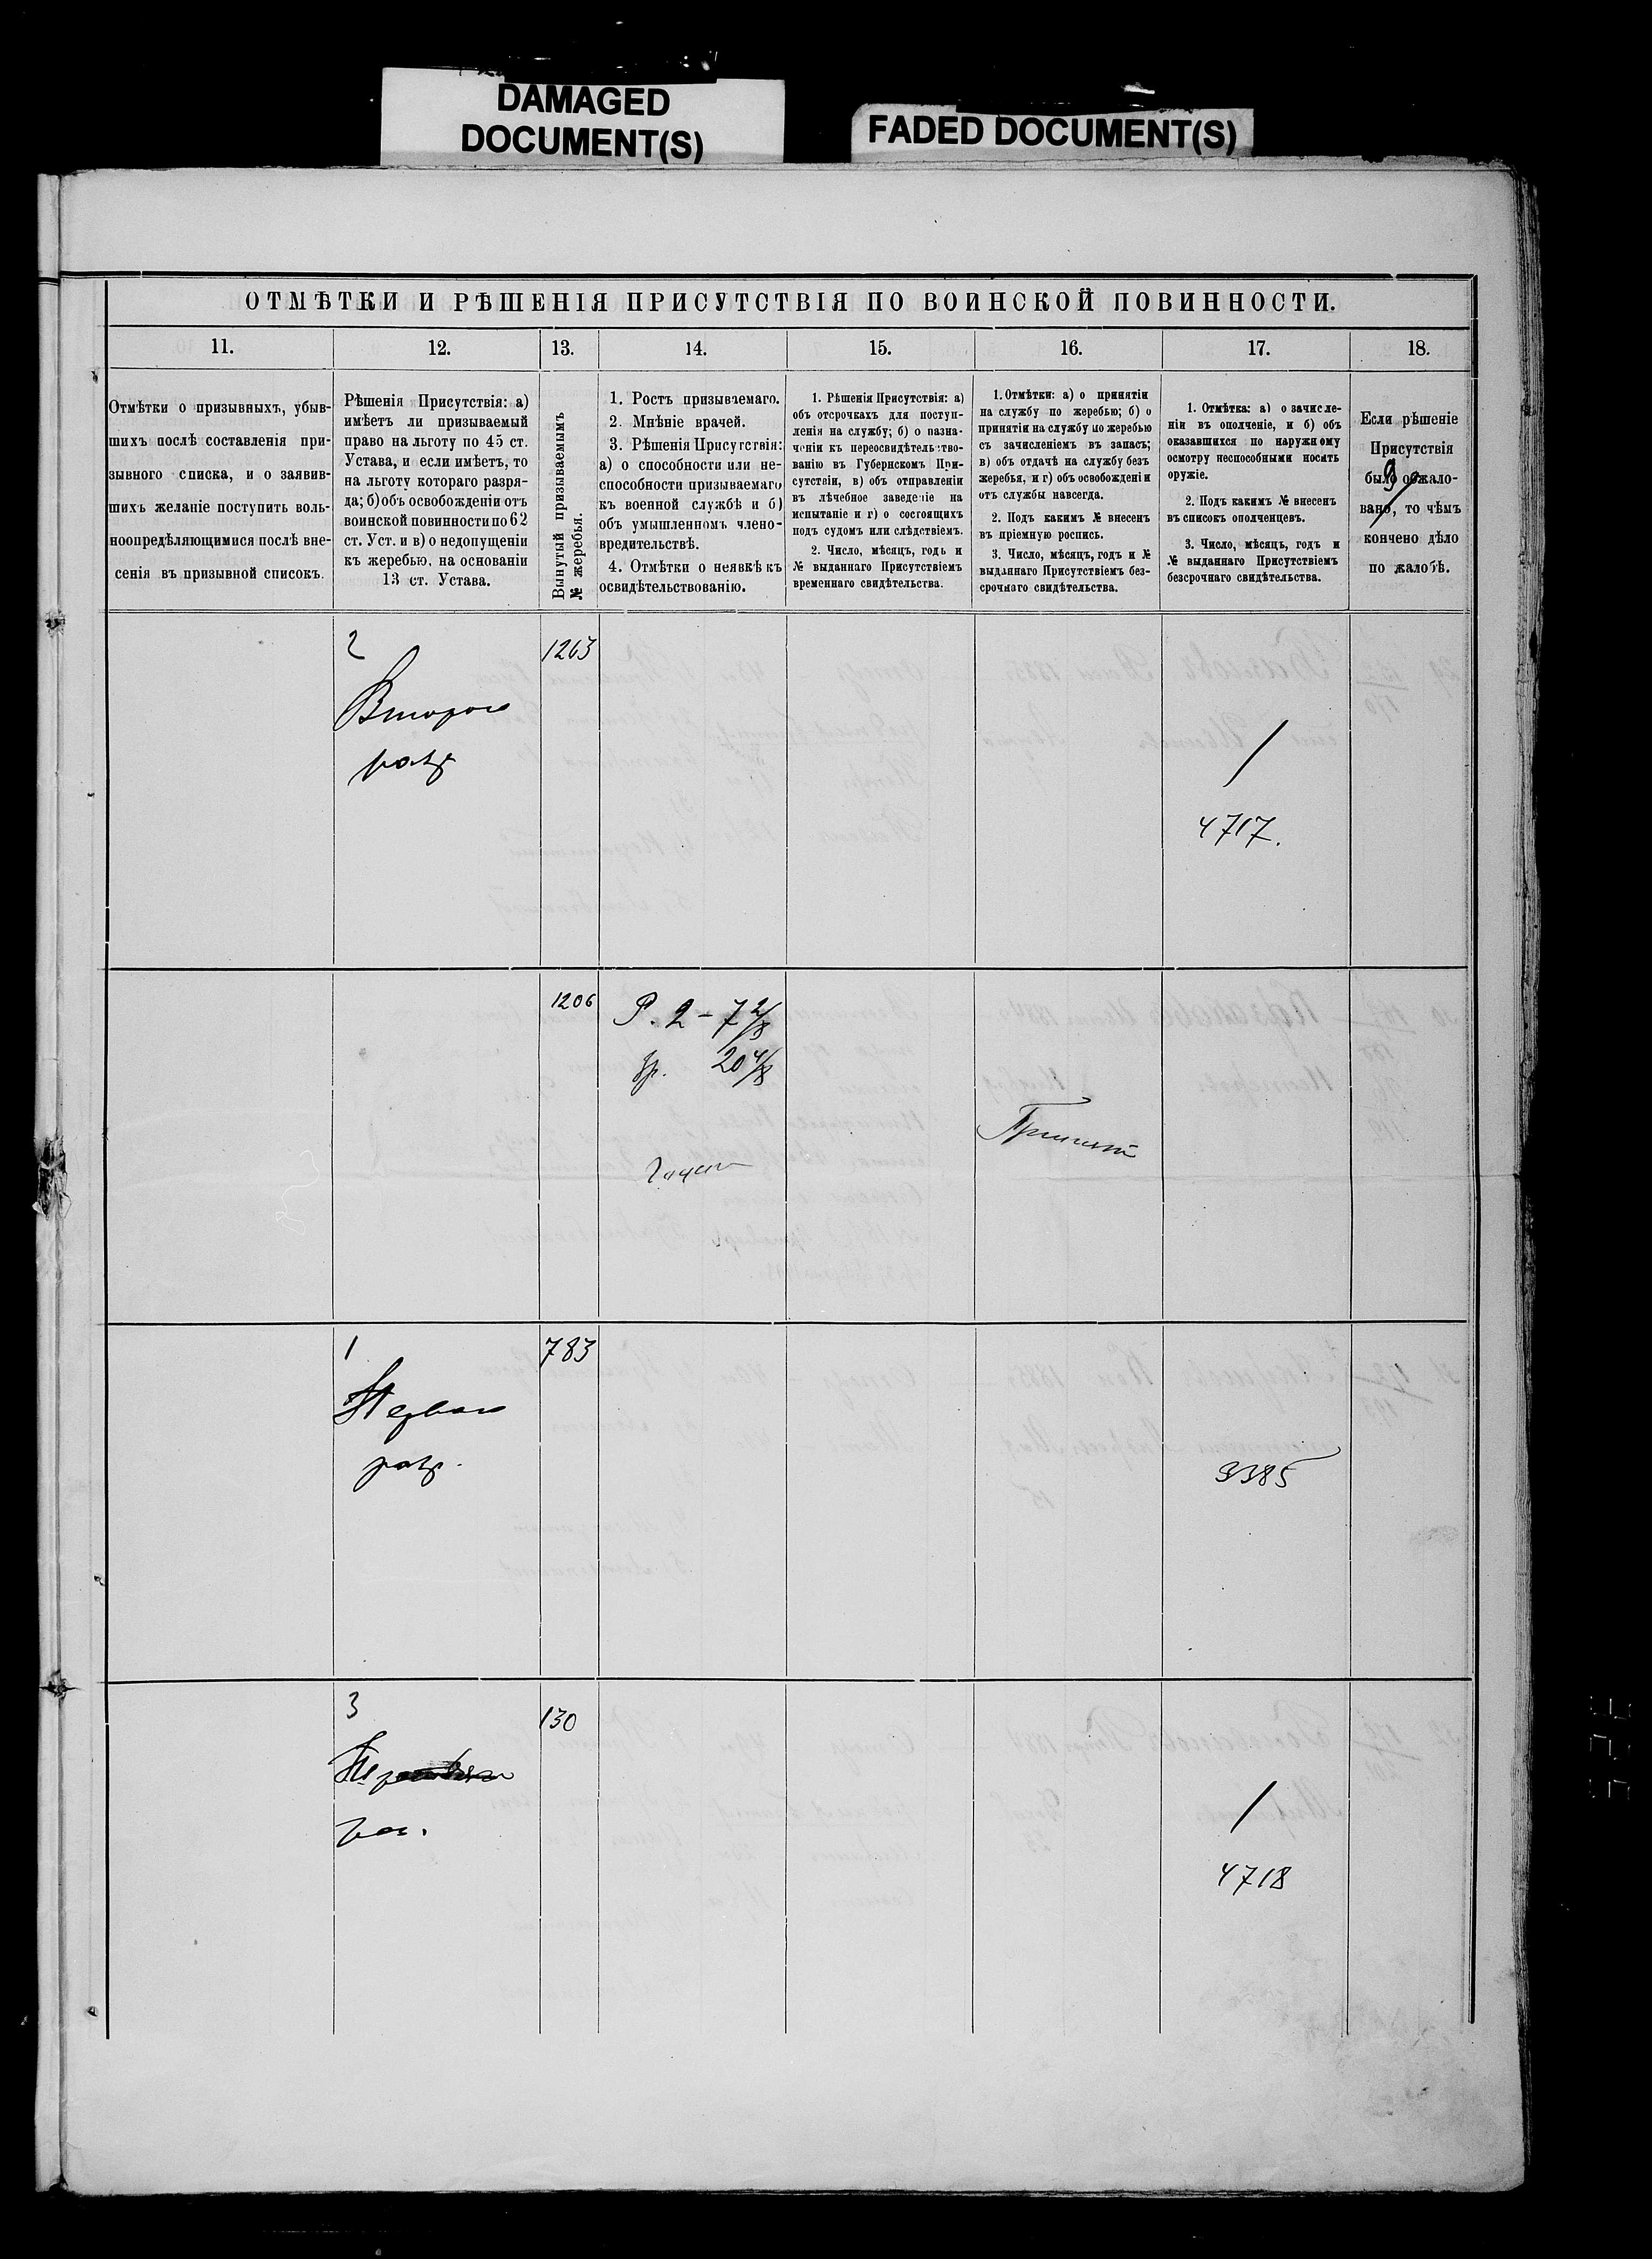 DAMAGED
DOCUMENT(S)
FADED DOCUMENT(S)
ОТМѢТКИ И РѢШЕНІЯ ПРИСУТСТВІЯ ПО ВОИНСКОЙ ПОВИННОСТИ.
11.
12.
13.
14.
15.
16.
17.
18.
Отмѣтки о призывныхъ, убыв-
шихъ послѣ составленія при-
зывного списка, и о заявив-
шихъ желаніе поступить воль-
ноопредѣляющимися послѣ вне-
сенія въ призывной списокъ.
Рѣшенія Присутствія: а)
имѣетъ ли призываемый
право на льготу по 45 ст.
Устава, и если имѣетъ, то
на льготу котораго разря-
да; б) объ освобожденіи отъ
воинской повинности по 62
ст. Уст. и в) о недопущеніи
къ жеребью, на основаніи
13 ст. Устава.
Вынутый призываемымъ
№ жеребья.
1. Ростъ призываемаго.
2. Мнѣніе врачей.
3. Рѣшенія Присутствія:
а) о способности или не-
способности призываемаго
къ военной службѣ и б)
объ умышленномъ члено-
вредительствѣ.
4. Отмѣтки о неявкѣ къ
освидѣтельствованію.
1. Рѣшенія Присутствія: а)
объ отсрочкахъ для поступ-
ленія на службу; б) о назна-
ченіи къ переосвидѣтельство-
ванію въ Губернскомъ При-
сутствіи, в) объ отправленіи
въ лѣчебное заведеніе на
испытаніе и г) о состоящихъ
подъ судомъ или слѣдствіемъ.
2. Число, мѣсяцъ, годъ и
№ выданнаго Присутствіемъ
временнаго свидѣтельства.
1. Отмѣтки: а) о принятіи
на службу по жеребью; б) о
принятіи на службу по жеребью
съ зачисленіемъ въ запасъ;
в) объ отдачѣ на службу безъ
жеребья, и г) объ освобожденіи
отъ службы навсегда.
2. Подъ какимъ № внесенъ
въ пріемную роспись.
3. Число, мѣсяцъ, годъ и №
выданнаго Присутствіемъ без-
срочнаго свидѣтельства.
1. Отмѣтка: а) о зачисле-
ніи въ ополченіе, и б) объ
оказавшихся по наружному
осмотру неспособными носить
оружіе.
2. Подъ какимъ № внесенъ
въ списокъ ополченцевъ.
3. Число, мѣсяцъ, годъ и
№ выданнаго Присутствіемъ
безсрочнаго свидѣтельства.
Если рѣшеніе
Присутствія
было обжало-
вано, то чѣмъ
кончено дѣло
по жалобѣ.
2
Второго
разр
1263
4717.
1206
Р. 2 – 7 2/8
гр. 20 4/8
Годен
Принят
1
Перваго
разр.
783
3385
3
раз.
130
4718